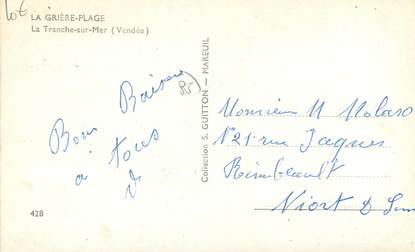 lot
LA GRIÈRE-PLAGE
La Tranche-sur-Mer (Vendée)
Bons Baisers
à tous
Collection S. GUITTON - MAREUIL
Monsieur M
N° 21 rue Jaques
Niort D
428